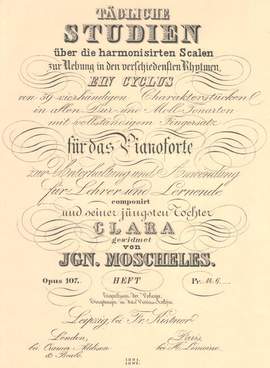 TÄGLICHE
STUDIEN
über die harmonisirten Scalen
zur Uebung in den verschiedensten Rhytmen,
EIN CYCLUS
von 59 vierhändigen Charakterstücken
in allen Dur- und Moll-Tonarten
mit vollständigem Fingersatz
für das Pianoforte
zur Unterhaltung und Anwendung
für Lehrer und Lernende
componirt
und seiner jüngsten Tochter
CLARA
gewidmet
von
JGN. MOSCHELES.
Opus 107. HEFT Pr.
Eigenthum der Verleger.
Leipzig, bei Fr. Kistner.
London, Paris,
bei Cramer Addison bei H. Lemoine.
& Beale.